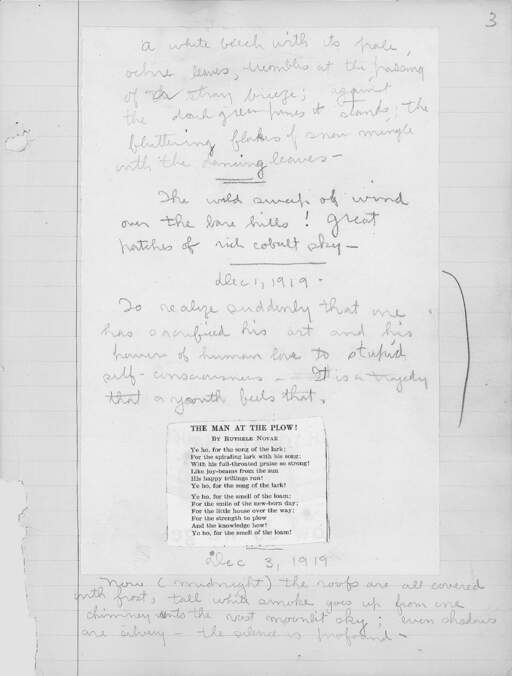 3
A white beech with its pale,
ochre leaves, trembles at the passing
of the stray breeze; against
the dark green pines it stands; the
fluttering flakes of snow mingle
with the dancing leaves —
The wild sweep of wind
over the bare hills! great
patches of rich cobalt sky —
Dec 1, 1919 -
To realize suddenly that one
has sacrificed his art and his
of human love to stupid
self-consciousness — It is a tragedy
that a youth feels that.
THE MAN AT THE PLOW!
BY RUTHELE NOVAK
Yo ho, for the song of the lark;
For the spiraling lark with his song;
With his full-throated praise so strong!
Like joy-beams from the sun
His happy trillings run!
Yo ho, for the song of the lark!
Yo ho, for the smell of the loam;
For the smile of the new-born day;
For the little house over the way;
For the strength to plow
And the knowledge how!
Yo ho, for the smell of the loam!
Dec 3, 1919
Now (midnight) the roofs are all covered
with frost; tall white smoke goes up from one
chimney into the vast moonlit sky; even shadows
are silvery — the silence is profound —